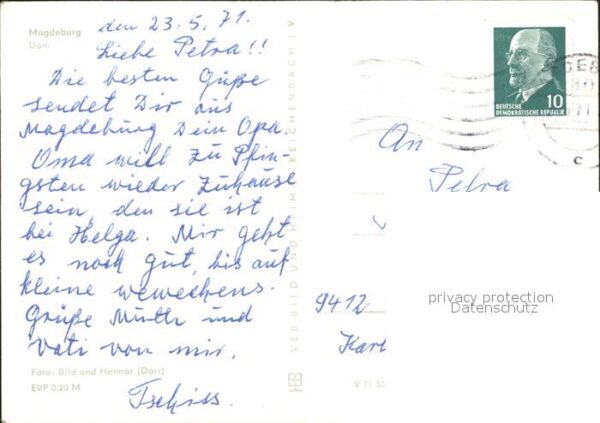 Magdeburg
Dom
den 23.5.71.
Liebe Petra!!
Die besten Grüße
sendet Dir aus
Magdeburg Dein Opa.
Oma will zu Pfin-
gsten wieder Zuhause
sein, den sie ist
bei Helga. Mir geht
es noch gut, bis auf
kleine wewechens.
Grüße Mutti und
Vati von mir.
Tschiss.
Foto: Bild und Heimat (Darr)
EVP 0,20 M
VEB BILD UND HEIMAT REICHENBACH I.V
V 11 50
10
DEUTSCHE
DEMOKRATISCHE REPUBLIK
An
Petra
9412
privacy protection
Datenschutz
Karl